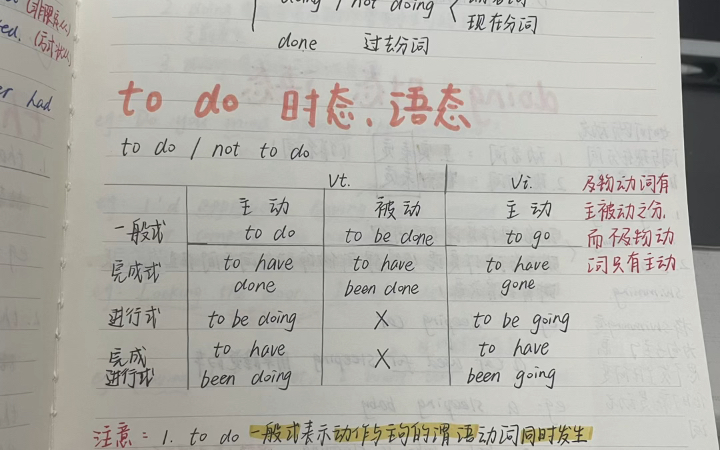 doing / not doing
现在分词
done 过去分词
ted.
er had
to do 时态、语态
to do / not to do
Vt. Vi.
主动 被动 主动
一般式 to do to be done to go
完成式 to have done to have been done to have gone
进行式 to be doing X to be going
完成进行式 to have been doing X to have been going
及物动词有
主被动之分,
而不及物动
词只有主动
注意: 1. to do 一般式表示动作与主句的谓语动词同时发生